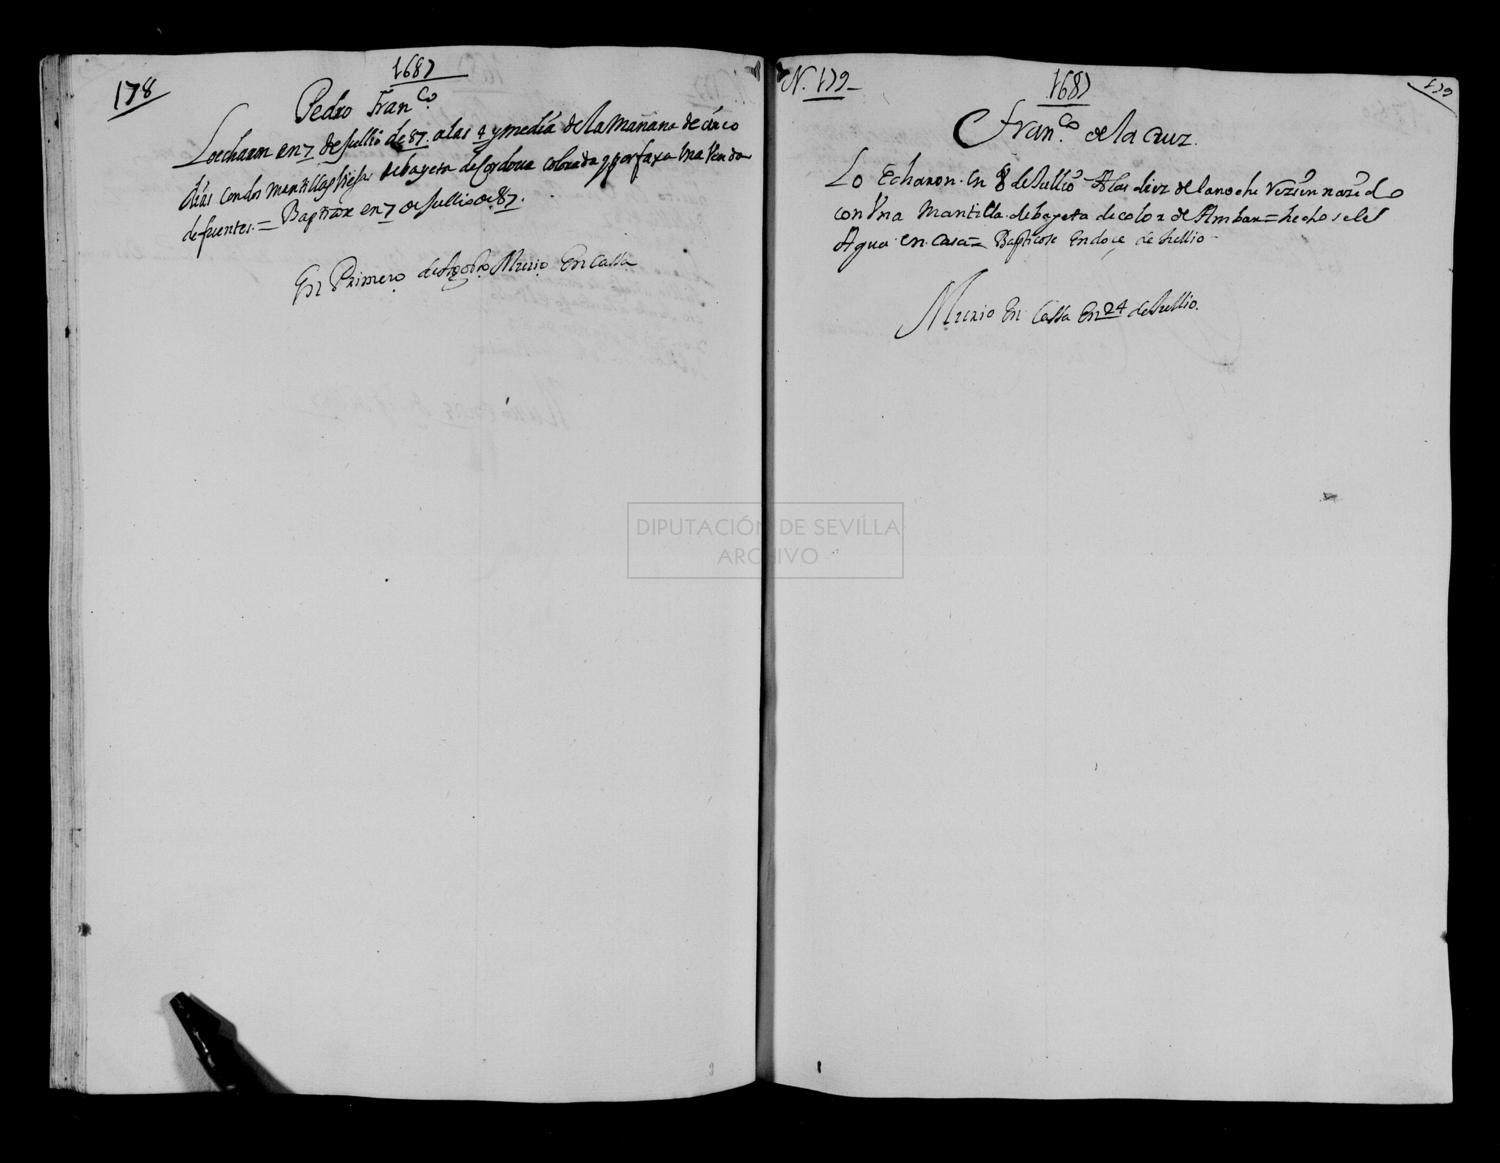 178
1687
Pedro Fran.co
Loecharon en 7 de Jullio de 87. a las 4 y media de la Mañana de cinco
días con dos mantillas viejas de bayeta de Cordova colorada y por faxa Una Venda
de fuentes = Baptizose en 7 de Jullio de 87.
En Primero de Agosto Murio En Cassa
N. 179
1687
179
Fran.co de la Cruz.
Lo Echaron en 8 de Jullio A las diez de la noche rezien nazido
con Vna Mantilla de bayeta de color de Ambar = hechosele el
Agua en casa = Bapticose en doçe de Jullio
Murio En Cassa En 24 de Jullio.
DIPUTACIÓN DE SEVILLA
ARCHIVO